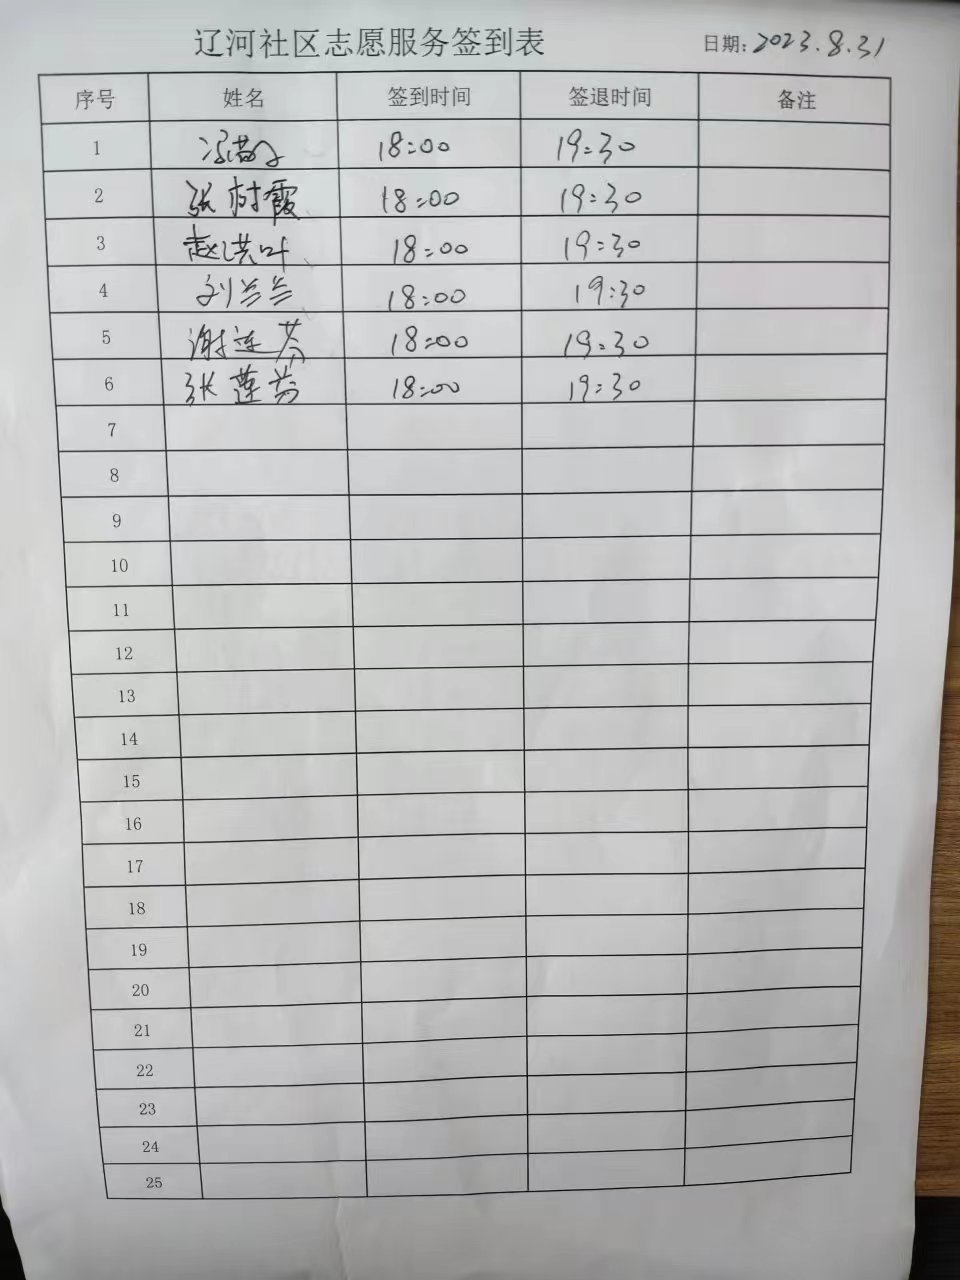 辽河社区志愿服务签到表
日期: 2023.8.31
序号 姓名 签到时间 签退时间 备注
1 18:00 19:30
2 张树霞 18:00 19:30
3 赵洪叶 18:00 19:30
4 刘兰兰 18:00 19:30
5 谢连芬 18:00 19:30
6 张莲芳 18:00 19:30
7
8
9
10
11
12
13
14
15
16
17
18
19
20
21
22
23
24
25